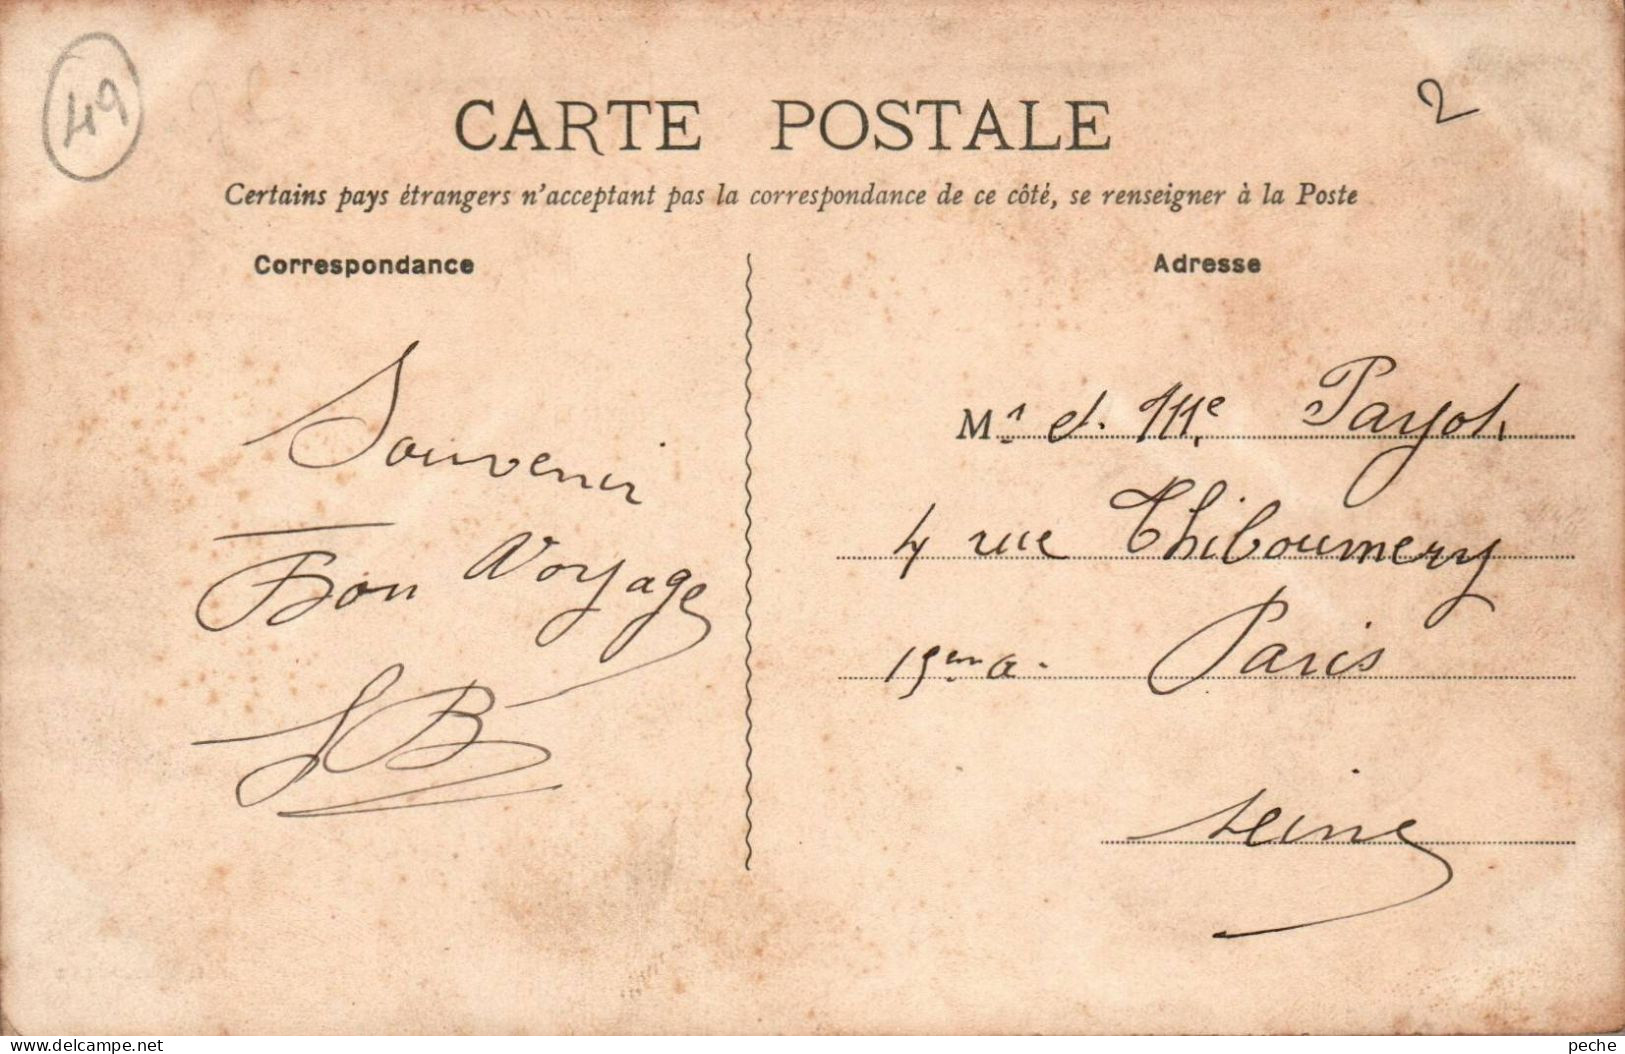 49
2
CARTE POSTALE
Certains pays étrangers n'acceptant pas la correspondance de ce côté, se renseigner à la Poste
Correspondance
Souvenir
Bon Voyage
LB
Adresse
Mr et Mme Payot
4 rue Thiboumery
15em a. Paris
Seine
delcampe.net
peche